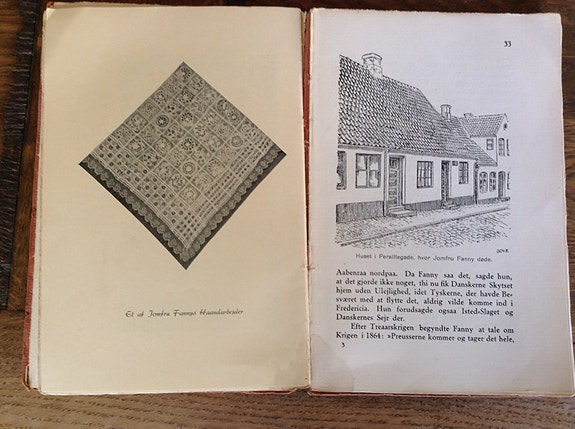 Et af Jomfru Fannys Haandarbejder
33
Huset i Persillegade, hvor Jomfru Fanny døde.
Aabenraa nordpaa. Da Fanny saa det, sagde hun,
at det gjorde ikke noget, thi nu fik Danskerne Skytset
hjem uden Ulejlighed, idet Tyskerne, der havde Be-
sværet med at flytte det, aldrig vilde komme ind i
Fredericia. Hun forudsagde ogsaa Isted-Slaget og
Danskernes Sejr der.
Efter Treaarskrigen begyndte Fanny at tale om
Krigen i 1864: »Preusserne kommer og tager det hele,
3